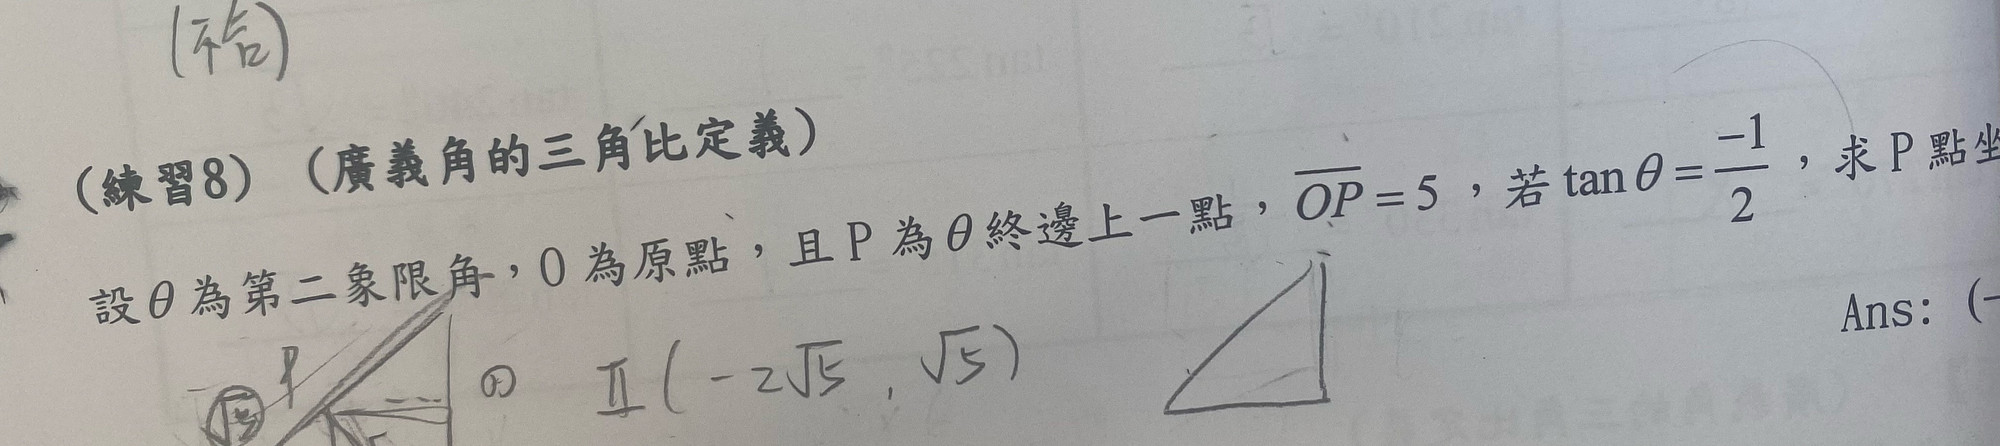 (不合)
(練習8) (廣義角的三角比定義)
設θ為第二象限角，O 為原點，且 P 為θ終邊上一點，OP = 5，若 tan θ = -1/2，求 P 點坐
Ans: (-
P
√5
II (-2√5 , √5)